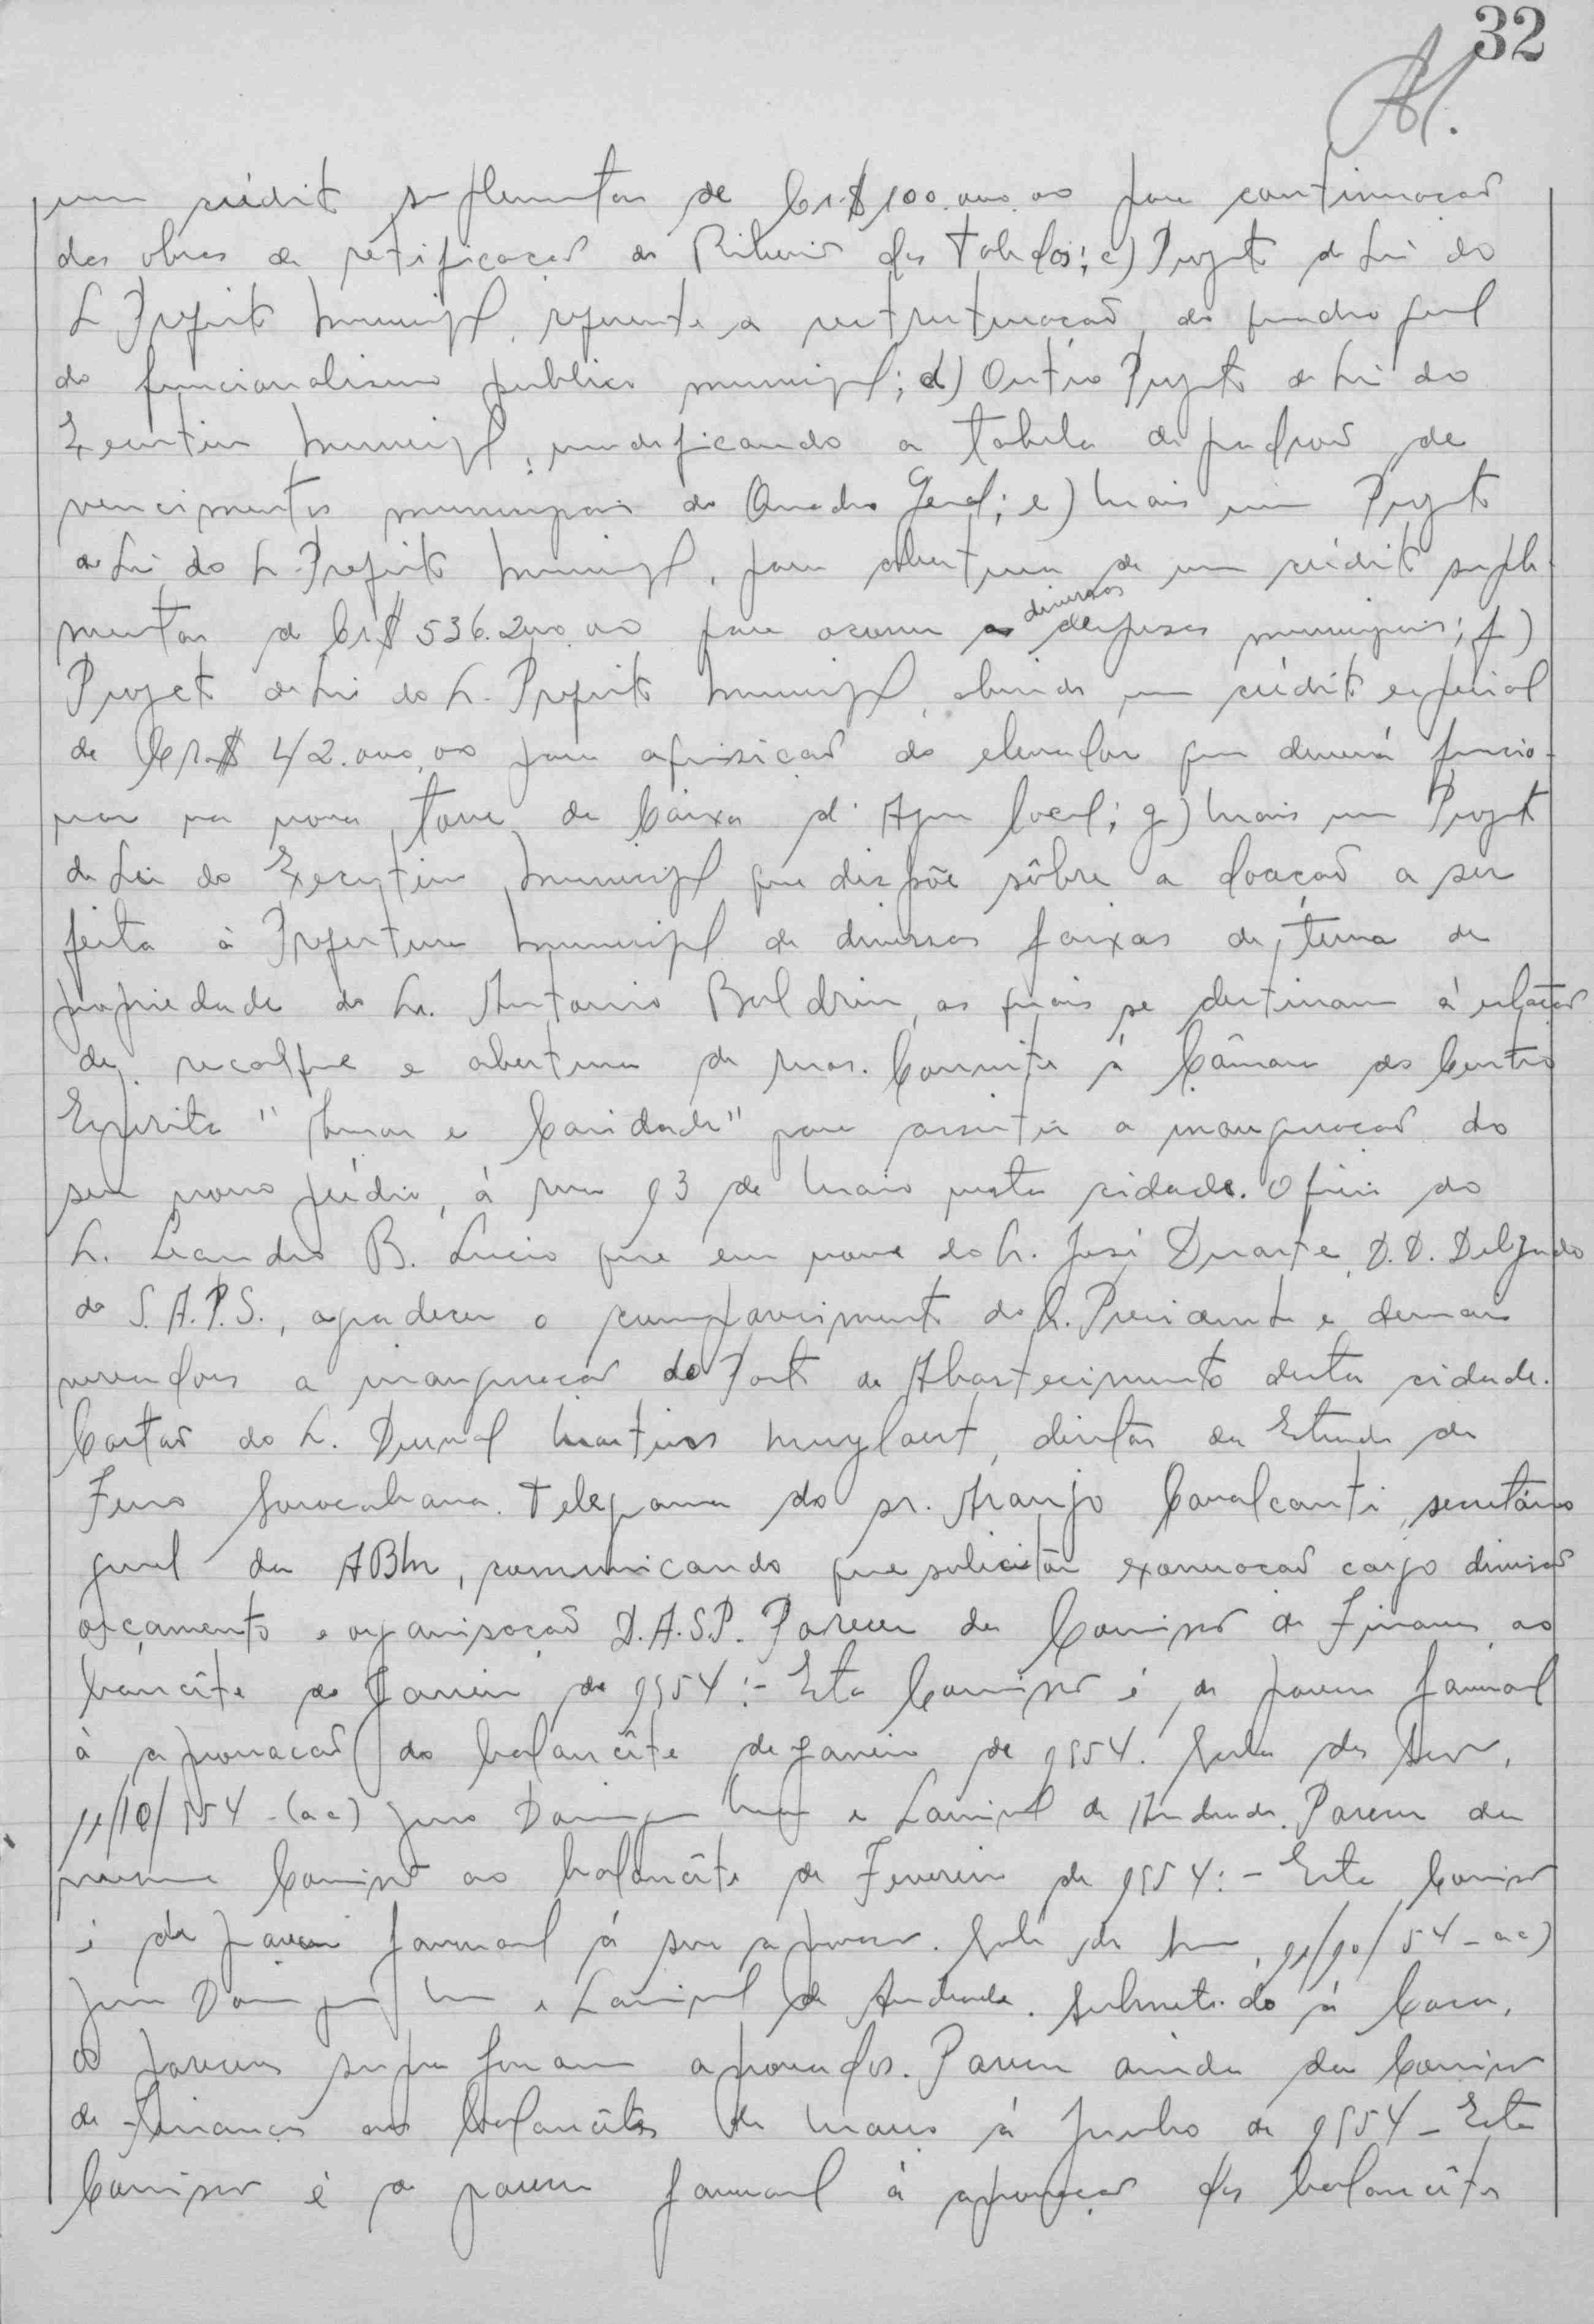 32
um crédito suplementar de Cr.$ 100.000,00 para continuação
das obras de retificação do Ribeirão dos Toledos; c) Projeto de Lei do
S. Prefeito Municipal, referente a restruturação, do quadro geral
do funcionalismo publico municipal; d) Outro Projeto de Lei do
Executivo Municipal, modificando a tabela de padrão de
vencimentos municipais do Quadro Geral; e) Mais um Projeto
de Lei do S. Prefeito Municipal, para abertura de um crédito suple-
mentar de Cr$ 536.200,00 para ocorrer as diversas despesas municipais; f)
Projeto de Lei do S. Prefeito Municipal, abrindo um crédito especial
de Cr.$ 42.000,00 para aquisição do elevador que deverá funcio-
nar na nova torre da Caixa d'Agua local; g) Mais um Projeto
de Lei do Executivo Municipal que dispõe sôbre a doação a ser
feita à Prefeitura Municipal de diversas faixas de terra de
propriedade do Sr. Antonio Baldrin, as quais se destinam à estação
de recalque e abertura de ruas. Convite à Câmara do Centro
Espirita "Amor e Caridade" para assistir a inauguração do
seu novo prédio, á rua 13 de Maio nesta cidade. Oficio do
S. Leandro B. Lucio que em nome do S. José Duarte, D.D. Delegado
do S.A.P.S., agradecer o comparecimento do S. Presidente e demais
vereadores a inauguração do Posto de Abastecimento desta cidade.
Cartão do S. Durval Martins Muylaert, diretor da Estrada de
Ferro Sorocabana. Telegrama do sr. Araujo Cavalcanti, secretário
geral da ABM, comunicando que solicitou exoneração cargo divisão
orçamento e organisação D.A.S.P. Parecer da Comissão de Finanças ao
bancête de Janeiro de 1954:- Esta Comissão é de parecer favoravel
à aprovação do balancête de janeiro de 1954. Sala das Sess.,
11/10/954 - (aa) Domingues e Lourival de Andrade. Parecer da
mesma Comissão ao balancête de Fevereiro de 1954:- Esta Comissão
é de parecer favoravel á sua aprovação. Sala das Sess., 11/10/54 - aa)
Domingues e Lourival de Andrade. Submetido á Casa,
os pareceres supra foram aprovados. Parecer ainda da Comissão
de Finanças aos balancêtes de Março á Junho de 1954 - Esta
Comissão é de parecer favoravel á aprovação dos balancêtes